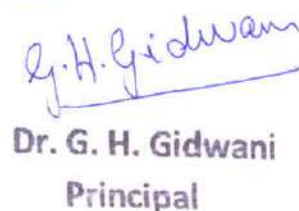 G.H.Gidwani
Dr. G. H. Gidwani
Principal